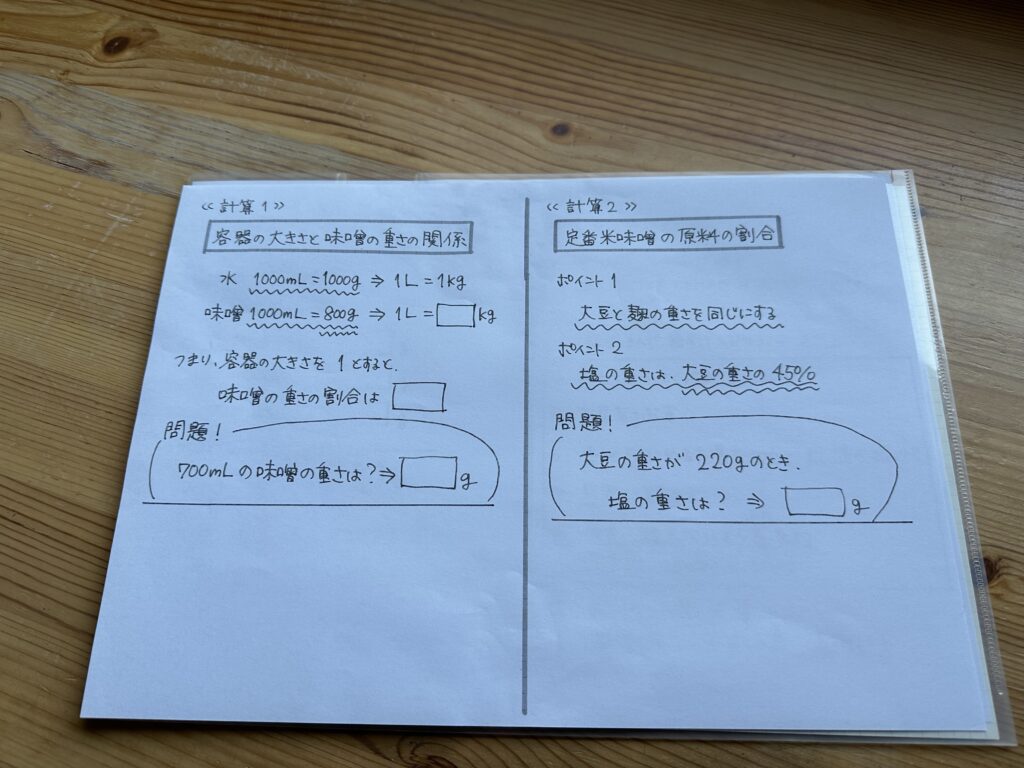 《計算1》
容器の大きさと味噌の重さの関係
水 1000mL=1000g ⇒ 1L=1kg
味噌 1000mL=800g ⇒ 1L=□kg
つまり、容器の大きさを1とすると、
味噌の重さの割合は□
問題!
700mLの味噌の重さは?⇒□g
《計算2》
定番米味噌の原料の割合
ポイント1
大豆と麹の重さを同じにする
ポイント2
塩の重さは、大豆の重さの45%
問題!
大豆の重さが220gのとき、
塩の重さは? ⇒ □g